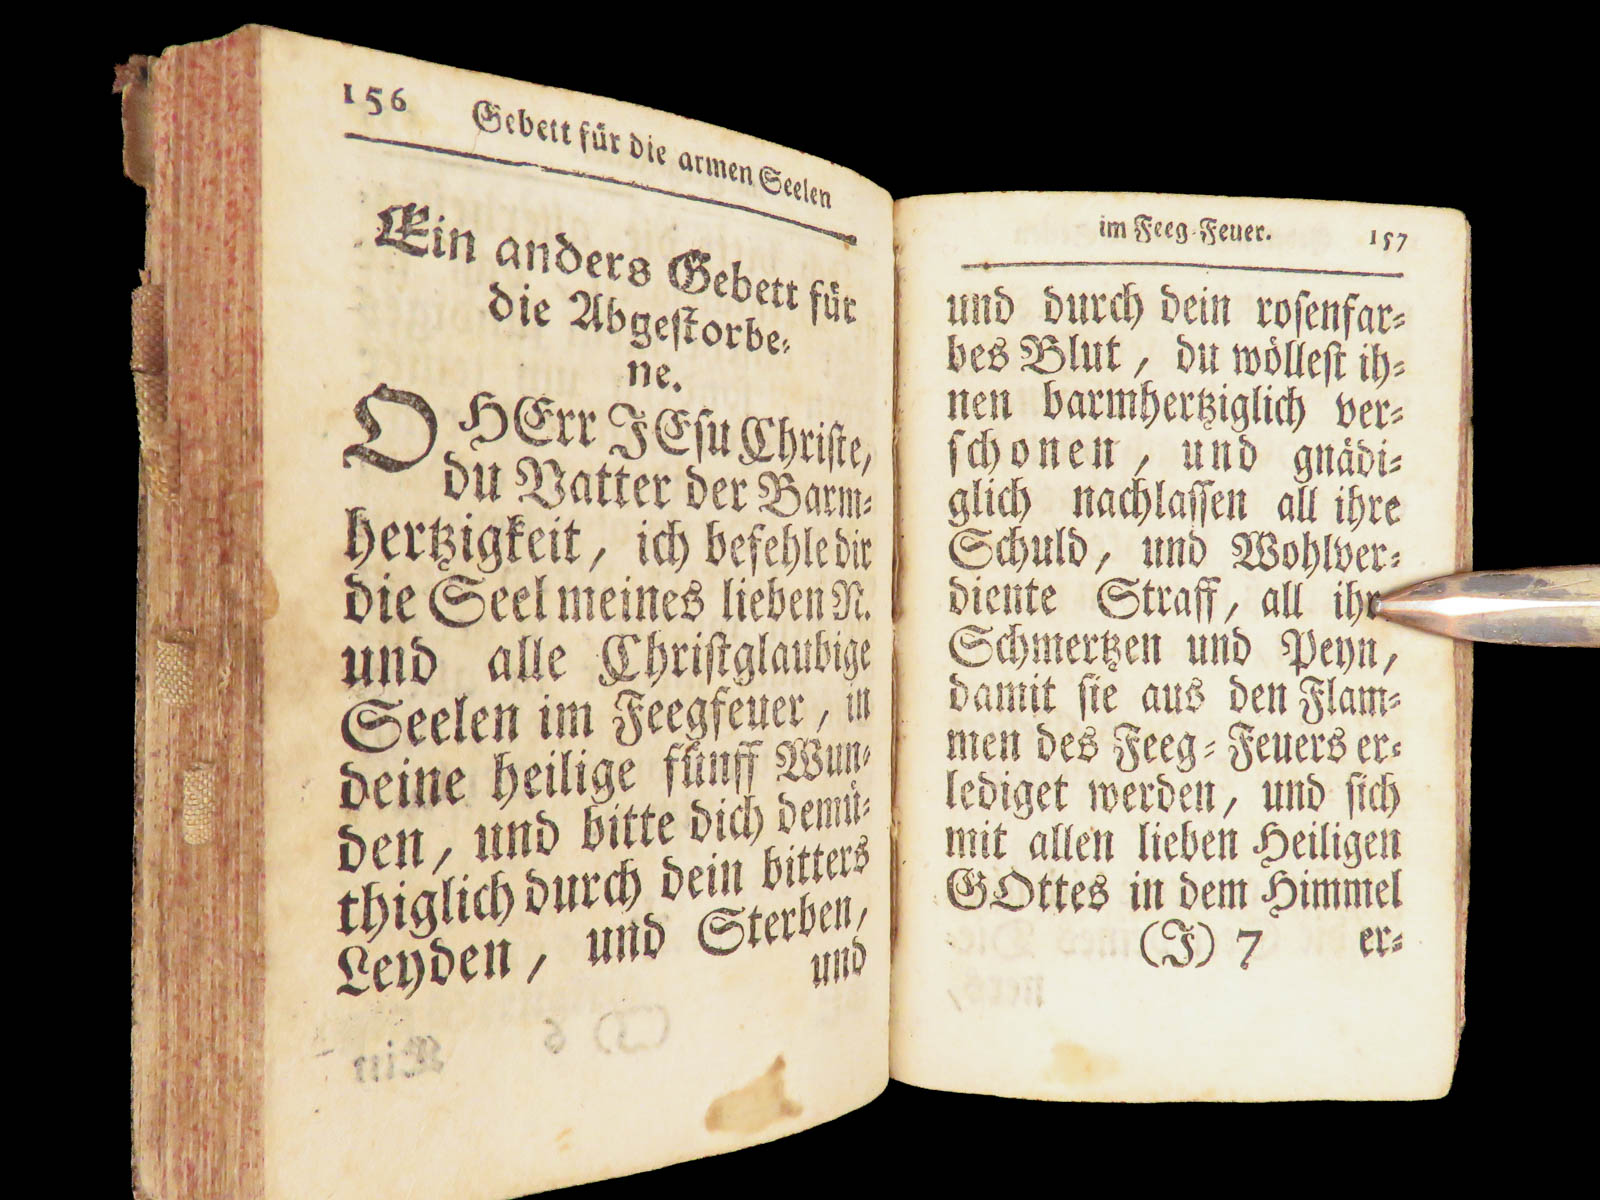 156 Gebett für die armen Seelen
Ein anders Gebett für
die Abgestorbe-
ne.
O HErr JEsu Christe,
du Vatter der Barm-
hertzigkeit, ich befehle dir
die Seel meines lieben N.
und alle Christglaubige
Seelen im Feegfeuer, in
deine heilige fünff Wun-
den, und bitte dich demü-
thiglich durch dein bitters
Leyden, und Sterben,
und
im Feeg-Feuer. 157
und durch dein rosenfar-
bes Blut, du wöllest ih-
nen barmhertziglich ver-
schonen, und gnädi-
glich nachlassen all ihre
Schuld, und Wohlver-
diente Straff, all ihr
Schmertzen und Peyn,
damit sie aus den Flam-
men des Feeg-Feuers er-
lediget werden, und sich
mit allen lieben Heiligen
GOttes in dem Himmel
(J) 7 er-